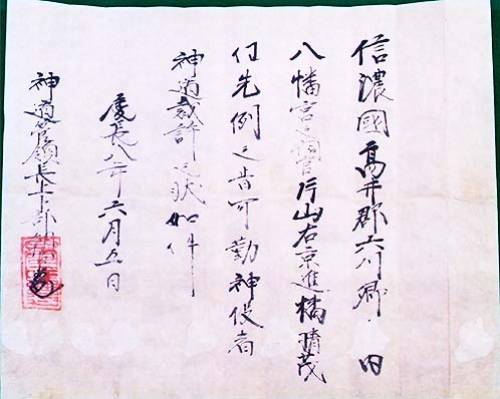 信濃國高井郡六川郷内
八幡宮之祠官片山右京進橘晴茂
任先例之旨可勤神役者
神道裁許之状如件
慶長八年六月五日
神道管領長上卜部